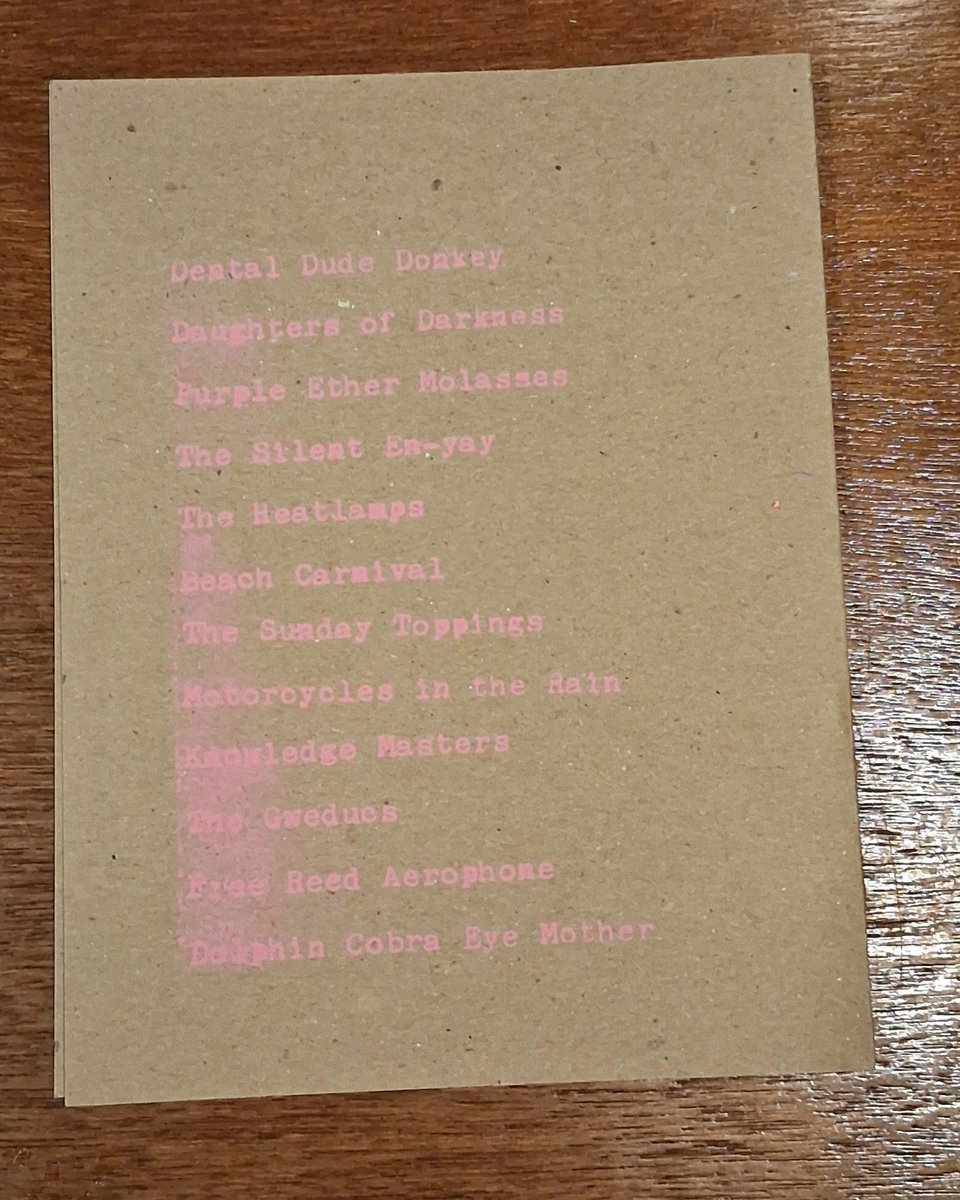 Dental Dude Donkey
Daughters of Darkness
Purple Ether Molasses
The Silent En-yay
The Heatlamps
Beach Carnival
The Sunday Toppings
Motorcycles in the Rain
Knowledge Masters
The Gweducs
Free Reed Aerophone
Dolphin Cobra Eye Mother